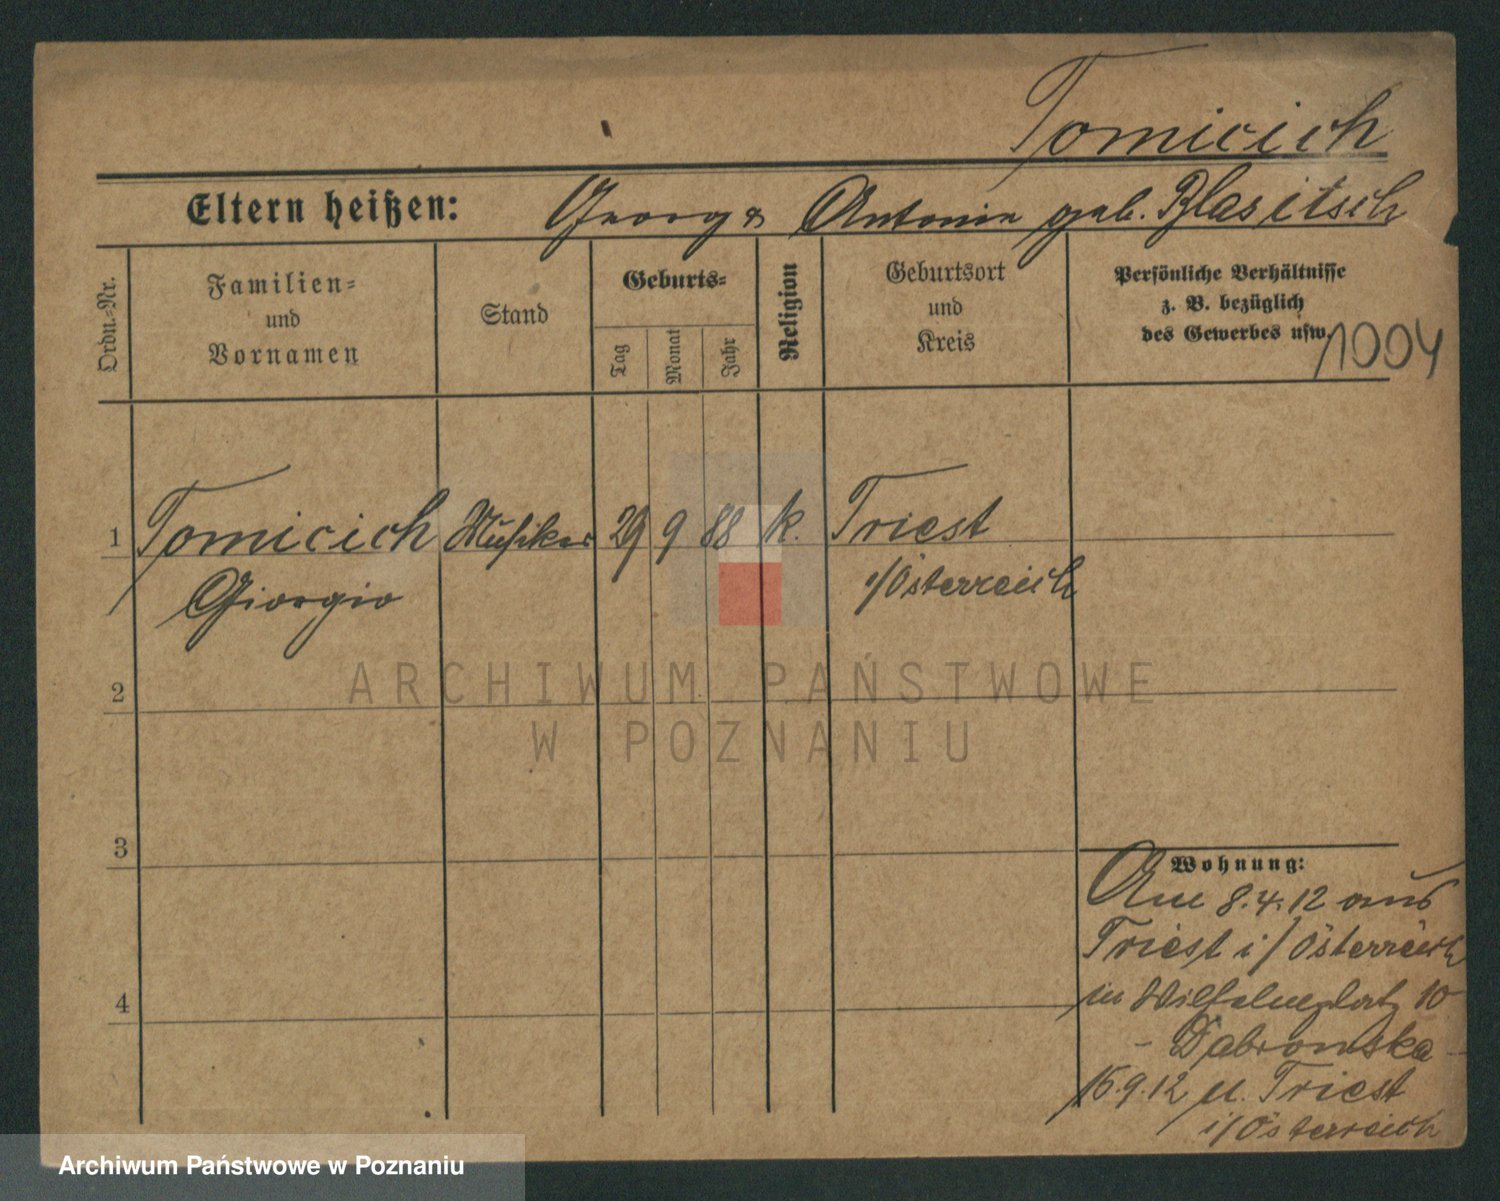 Tomicich
Eltern heißen: Georg & Antonia geb. Blasitsch
Ordn.-Nr.
Familien- und Vornamen
Stand
Geburts-
Tag
Monat
Jahr
Religion
Geburtsort und Kreis
Persönliche Verhältnisse
z. B. bezüglich
des Gewerbes usw.
1004
1 Tomicich Musiker 29 9 88 k. Triest
Giorgio i/Österreich
2
3
4
Wohnung:
Am 8.4.12 aus
Triest i/Österreich
in Wilhelmplatz 10
- Dabrowska -
15.9.12 n. Triest
i/Österreich
ARCHIWUM PAŃSTWOWE
W POZNANIU
Archiwum Państwowe w Poznaniu